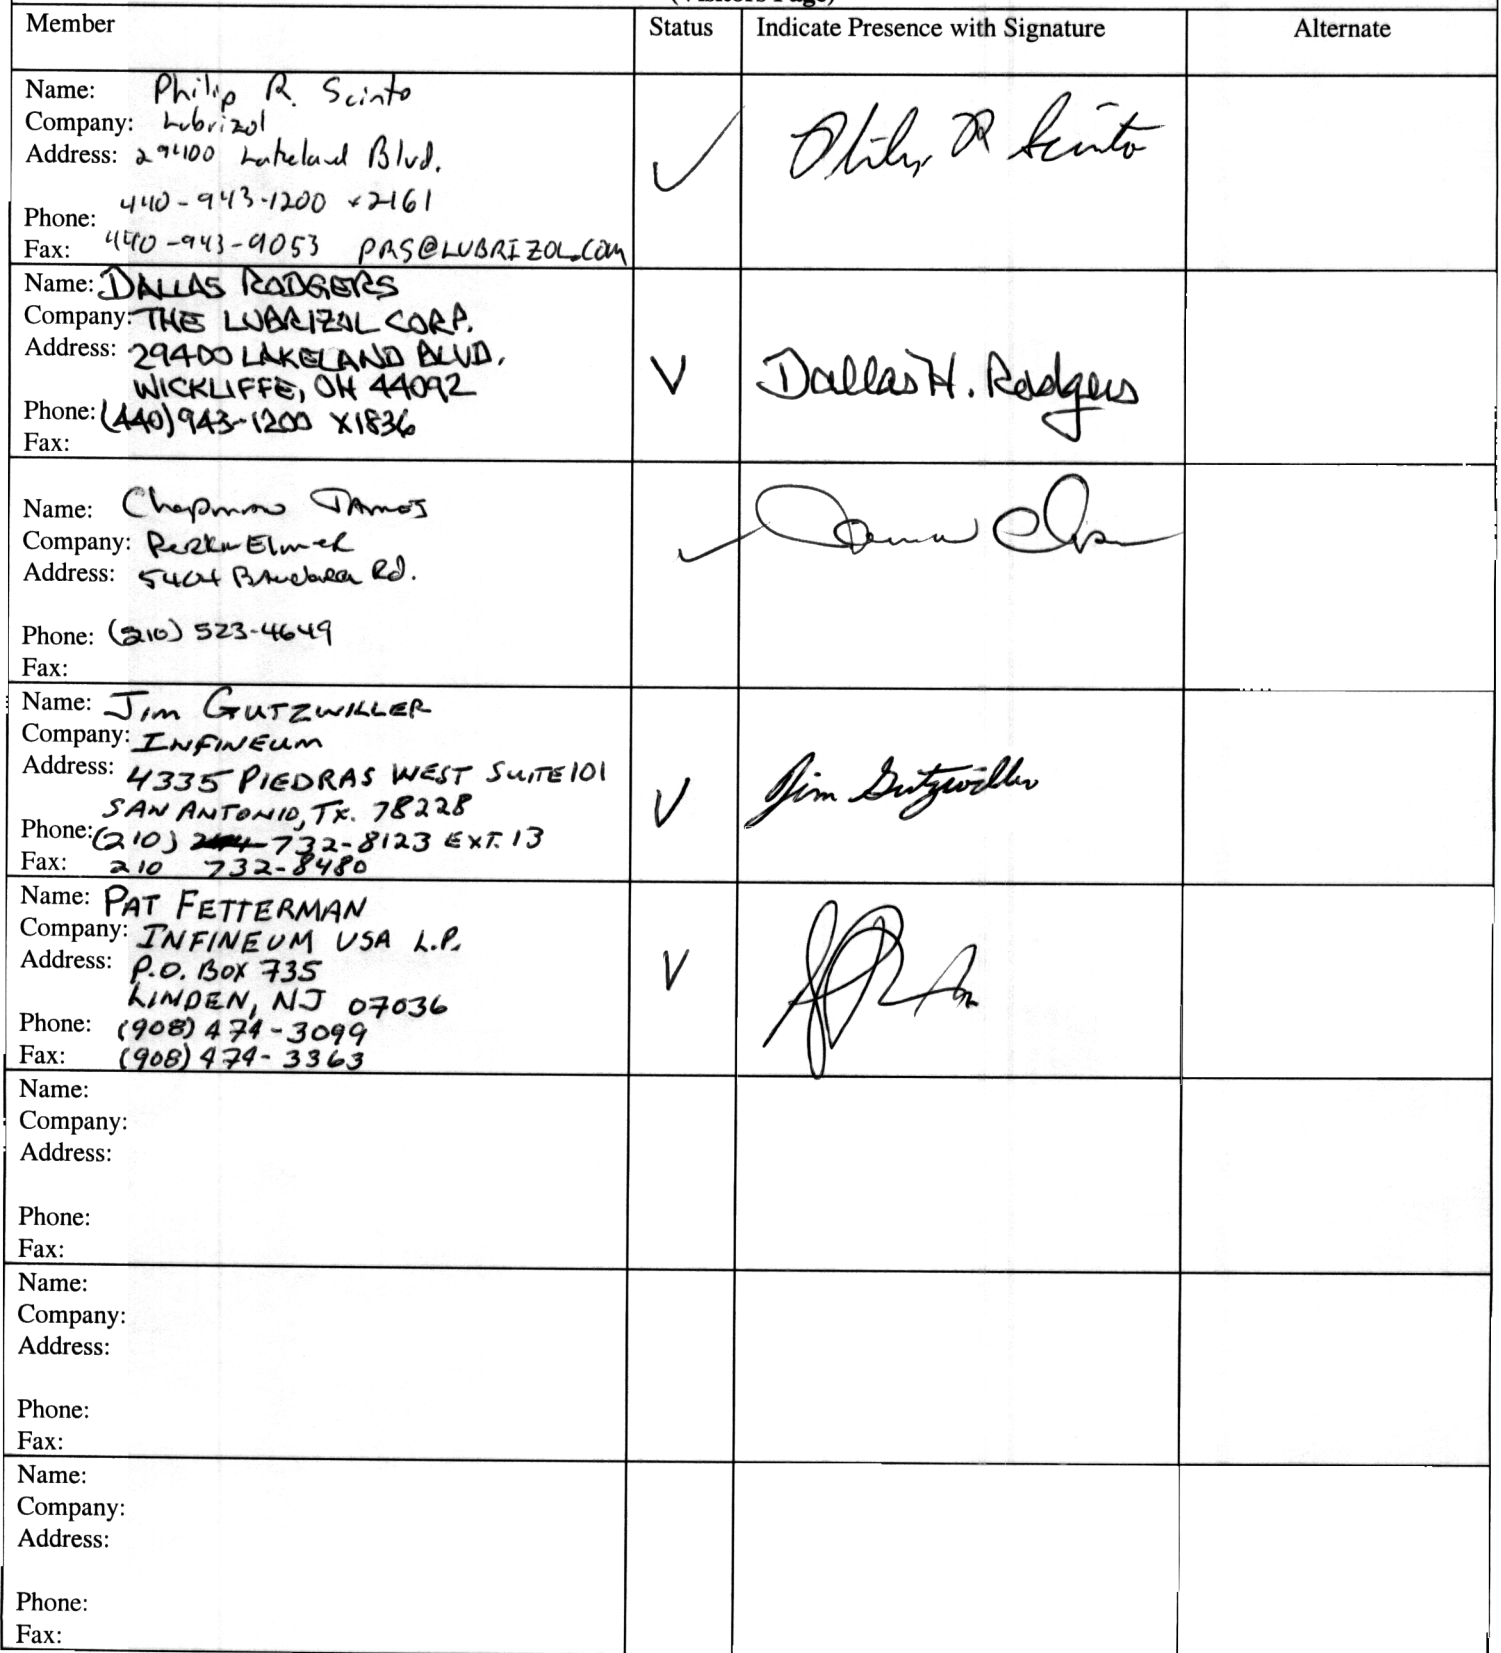 (Visitors Page)
Member Status Indicate Presence with Signature Alternate
Name: Philip R. Scinto
Company: Lubrizol
Address: 29400 Lakeland Blvd.
Phone: 440-943-1200 x2161
Fax: 440-943-9053 PRS@LUBRIZOL.COM
Philip R Scinto
Name: DALLAS RODGERS
Company: THE LUBRIZOL CORP.
Address: 29400 LAKELAND BLVD.
WICKLIFFE, OH 44092
Phone: (440) 943-1200 X1836
Fax:
V Dallas H. Rodgers
Name: Chapman James
Company: PerkinElmer
Address: 5404 Rd.
Phone: (210) 523-4649
Fax:
Name: Jim GUTZWILLER
Company: INFINEUM
Address: 4335 PIEDRAS WEST SUITE 101
SAN ANTONIO, TX. 78228
Phone: (210) 732-8123 EXT. 13
Fax: 210 732-8480
V Jim Gutzwiller
Name: PAT FETTERMAN
Company: INFINEUM USA L.P.
Address: P.O. BOX 735
LINDEN, NJ 07036
Phone: (908) 474-3099
Fax: (908) 474-3363
V
Name:
Company:
Address:
Phone:
Fax:
Name:
Company:
Address:
Phone:
Fax:
Name:
Company:
Address:
Phone:
Fax: